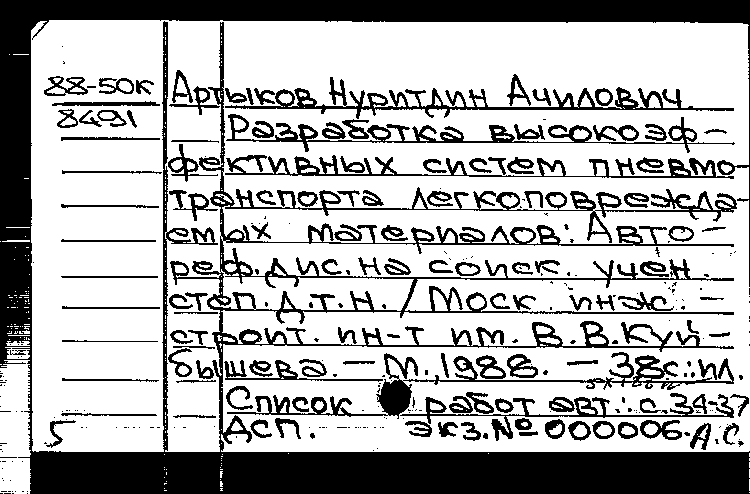 88-50к Артыков, Нуритдин Ачилович.
8491 Разработка высокоэф-
фективных систем пневмо-
транспорта легкоповрежда-
емых материалов: Авто-
реф. дис. на соиск. учен.
степ. д.т.н. / Моск. инж.-
строит. ин-т им. В.В.Куй-
бышева. - М., 1988. - 38с.: ил.
Список работ авт.: с.34-37
5 ДСП. Экз.№ 000006. А.С.